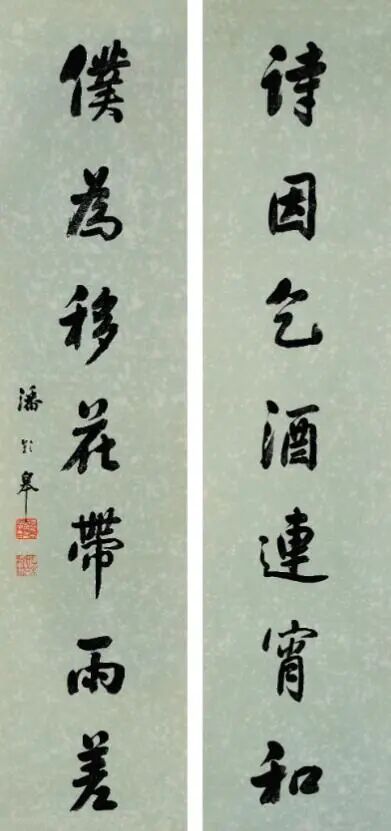 詩因乞酒連宵和
僕為移花帶雨差
潘齡皋